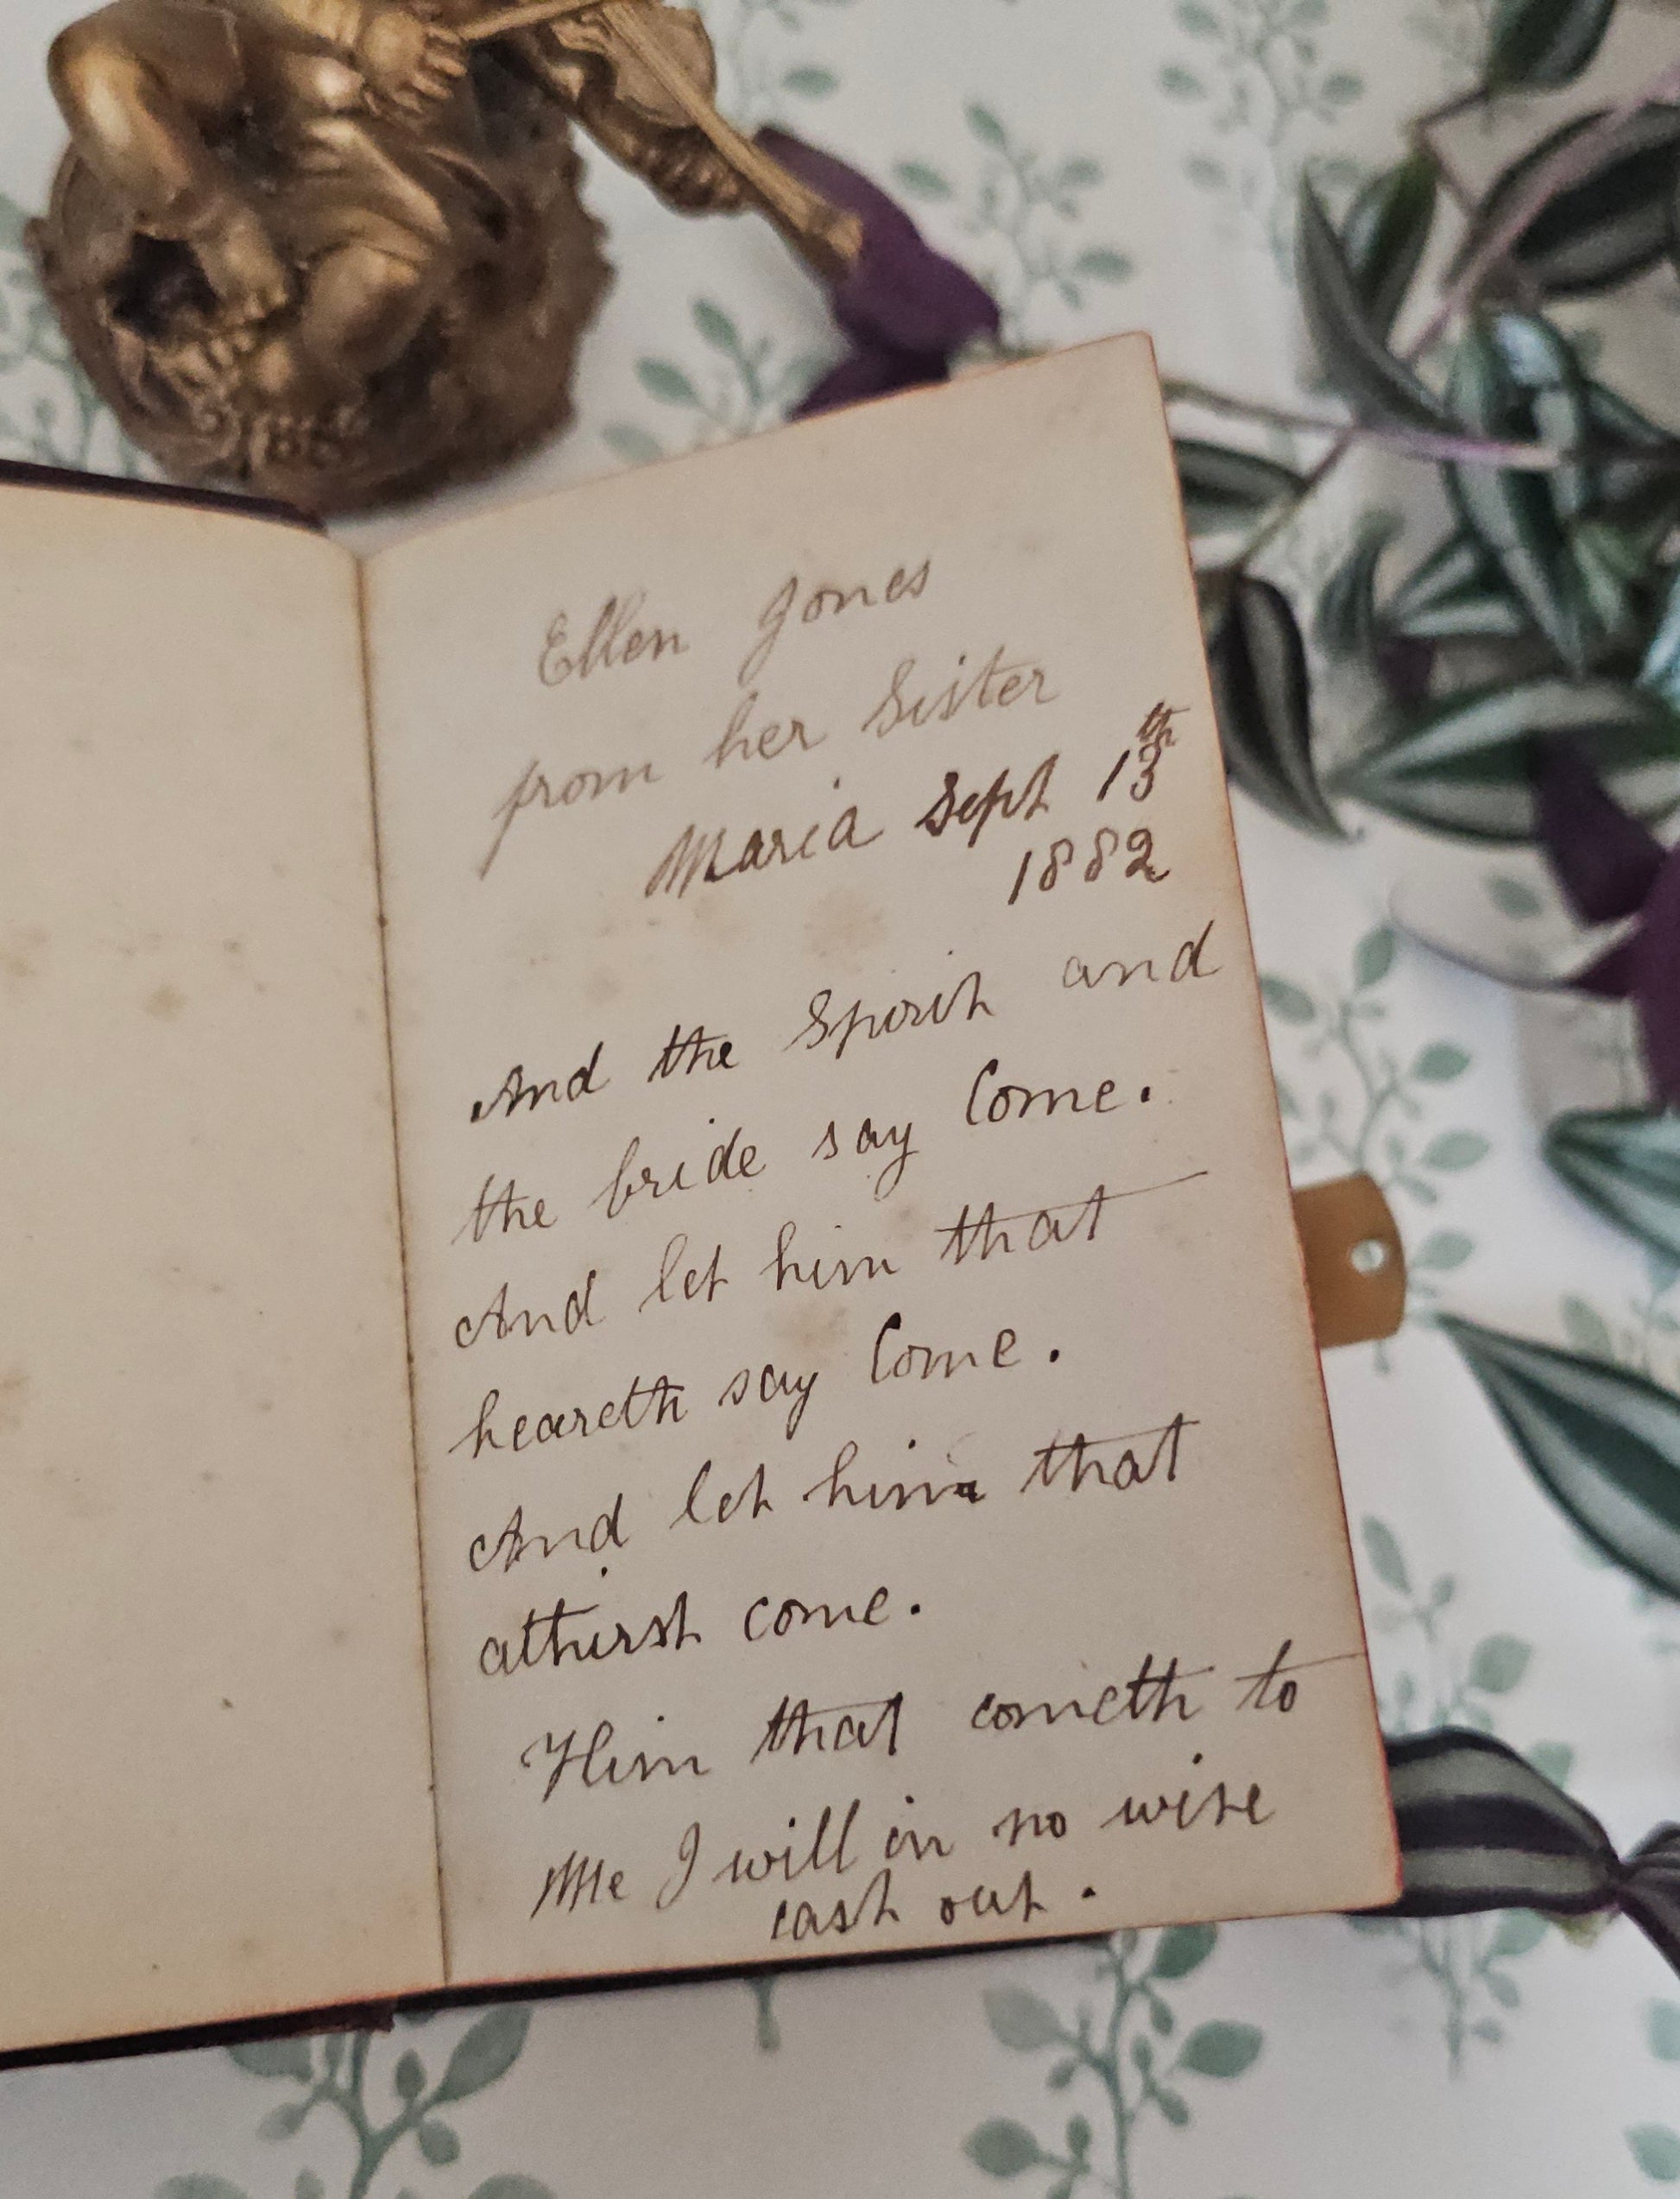 Ellen Jones
from her Sister
Maria Sept 13th
1882
And the Spirit and
the bride say Come.
And let him that
heareth say Come.
And let him that
athirst come.
Him that cometh to
Me I will in no wise
cast out.